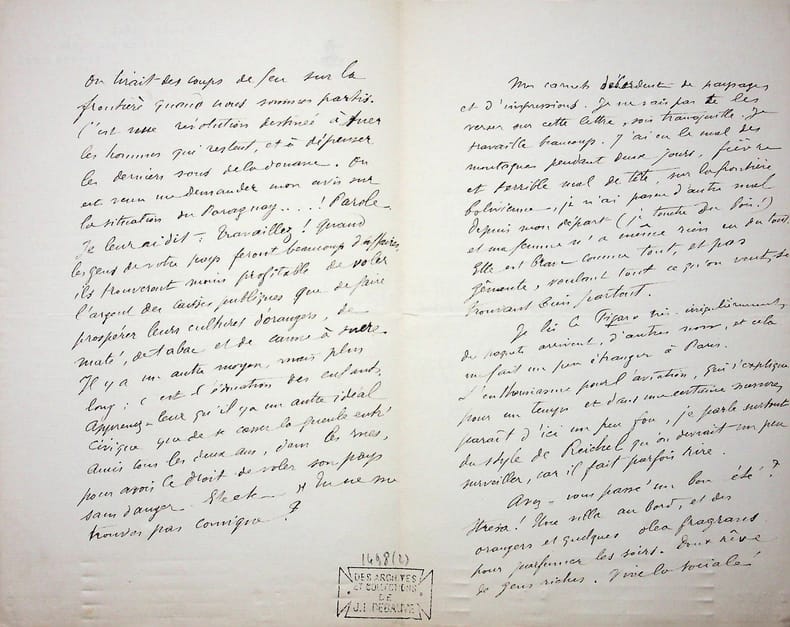 On tirait des coups de feu sur la
frontière quand nous sommes partis.
C'est une révolution destinée à tuer
les hommes qui restent, et à dépenser
les derniers sous de la douane. On
est venu me demander mon avis sur
la situation du Paraguay....! Parole.
Je leur ai dit : Travaillez ! Quand
les gens de votre pays feront beaucoup d'affaires,
ils trouveront moins profitable de voler
l'argent des caisses publiques que de faire
prospérer leurs cultures d'orangers, de
maté, de tabac et de canne à sucre.
Il y a un autre moyen, mais plus
long ; c'est l'éducation des enfants,
Apprenez-leur qu'il y a un autre idéal
civique que de se casser la gueule entr'
amis tous les deux ans, dans les rues,
pour avoir le droit de voler son pays
sans danger. Etc etc Tu ne me
trouves pas comique ?
Mes carnets débordent de paysages
et d'impressions. Je ne sais pas te les
verser sur cette lettre, sois tranquille. Je
travaille beaucoup. J'ai eu le mal des
montagnes pendant deux jours, fièvre
et terrible mal de tête, sur la frontière
bolivienne, je n'ai pas eu d'autre mal
depuis mon départ (je touche du bois!)
et ma femme n'a même rien eu du tout.
Elle est brave comme tout, et pas
gêneuse, voulant tout ce qu'on veut, se
trouvant bien partout.
Je lis le Figaro très irrégulièrement,
des paquets arrivent, d'autres non, et cela
me fait un peu étranger à Paris.
L'enthousiasme pour l'aviation, qui s'explique
pour un temps et dans une certaine mesure,
paraît d'ici un peu fou, je parle surtout
du style de Reichel qu'on devrait un peu
surveiller, car il fait parfois rire.
Avez-vous passé un bon été ?
Stresa ! Une villa au bord, et des
orangers et quelques olea fragrans
pour parfumer les soirs. Doux rêve
de gens riches. Vive la sociale !
1498(2)
DES ARCHIVES
ET COLLECTIONS
DE
J.L. DEBAUVE